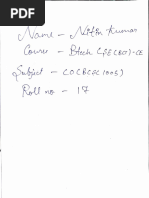 Name - Nitin Kumar
Course - Btech CSE(BCT)-CE
Subject - CO(BCOC1005)
Roll no - 17